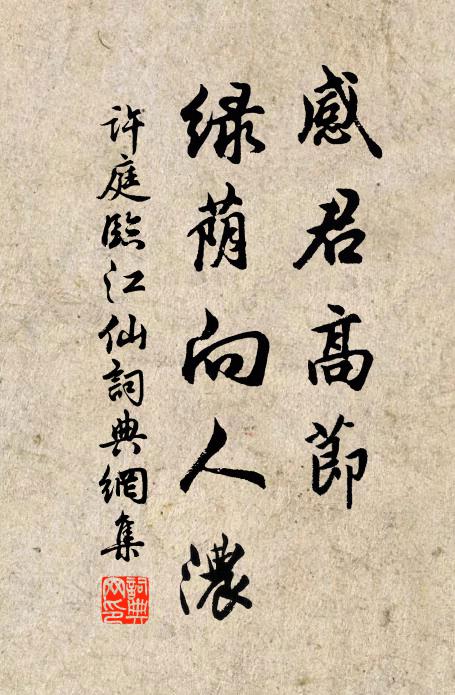 感君高節
緑荫向人濃
許庭臨江仙詞典網集
詞典